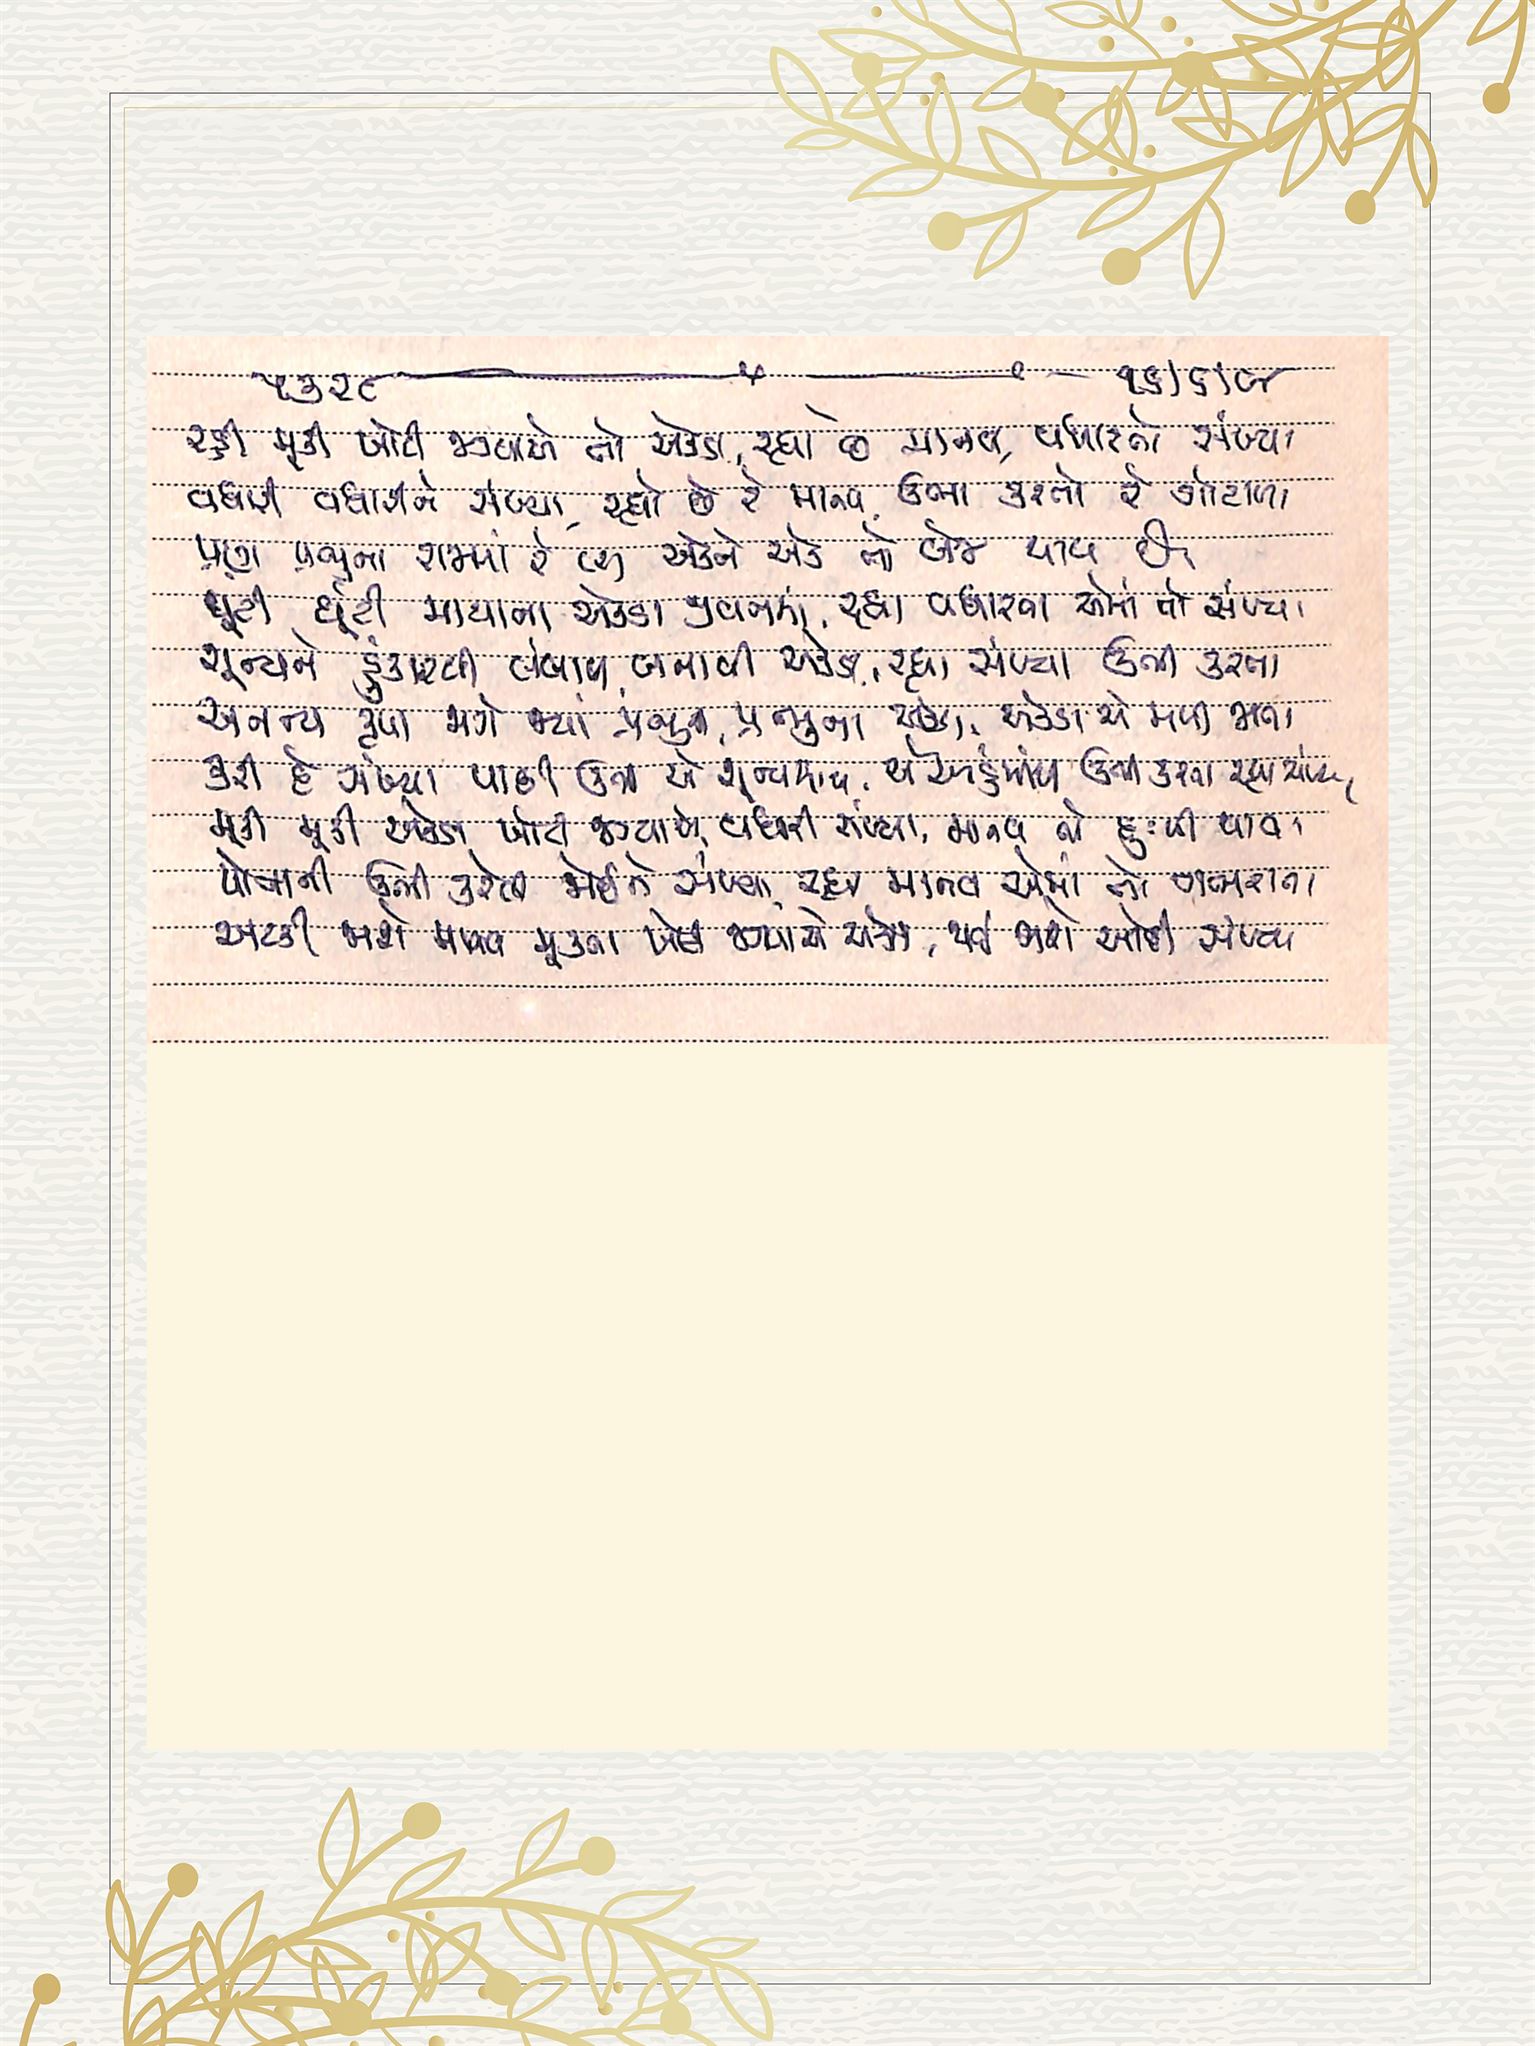 ૫૩૨૮ ૧૬/૬/૯૪
રહી મૂકી ખોટી જગ્યાએ તો એકડા, રહ્યા છે માનવ, વધારતો સંખ્યા
વધારી વધારીને સંખ્યા, રહ્યો છે રે માનવ, ઉભા કરતો રે ગોટાળા
પ્રભુના રાજ્યમાં રે એકને એક તો બેજ થાય છે
ઘૂંટી ઘૂંટી માયાના એકડા જીવનમાં, રહ્યા વધારતા એમાં તો સંખ્યા
શૂન્યને હુંકારથી લંબાવી, બનાવી એકડા, રહ્યા સંખ્યા ઉભી કરતા
અનન્ય કૃપા મળે જ્યાં પ્રભુની, પ્રભુના એકડા, એકડા એ મળી જાતા
કરી દે સંખ્યા પાછી ઉભા એ શૂન્યમાંય, એ ઉભી કરતા રહ્યા સંખ્યા
મૂકી મૂકી એકડા ખોટી જગ્યાએ, વધારી સંખ્યા, માનવ તો દુઃખી થાતા
પોતાની ઉભી કરેલી જોઈને સંખ્યા, રહ્યા માનવ એમાં તો ગભરાતા
અટકી જાશે માનવ મૂકતા ખોટી જગ્યાએ એકડા, થઈ જાશે ઓછી સંખ્યા